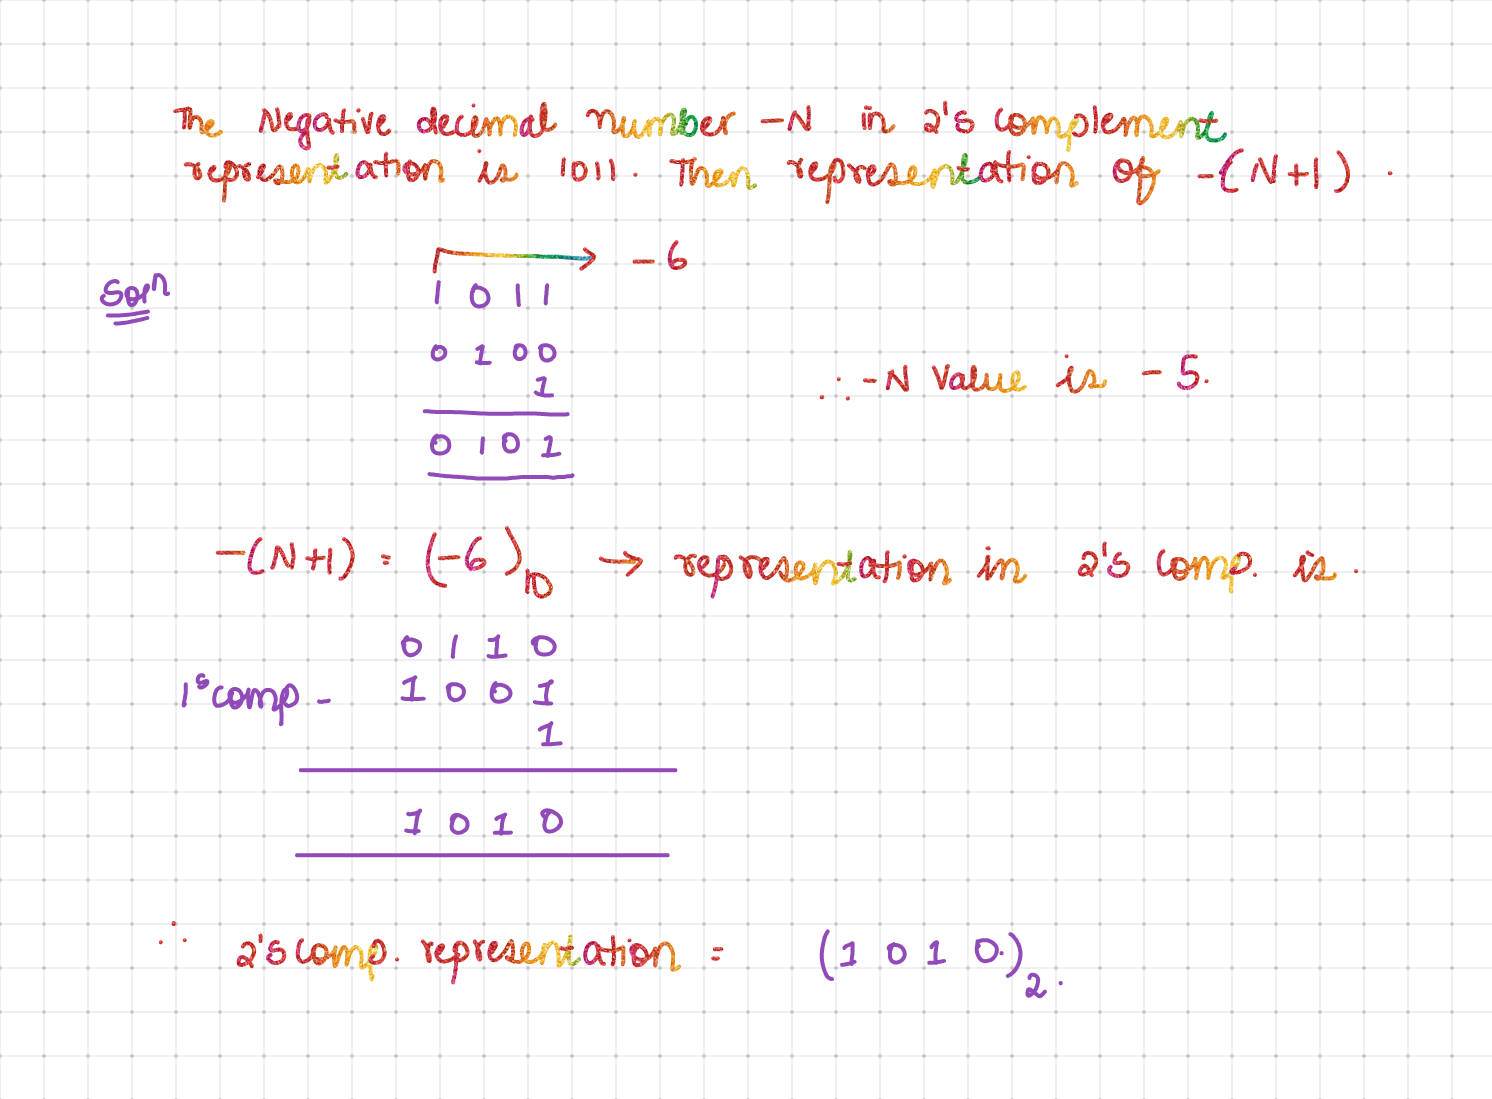 The Negative decimal number -N in 2's complement
representation is 1011. Then representation of -(N+1).
→ -6
Sol^n
1 0 1 1
0 1 0 0
1
∴ -N Value is -5.
0 1 0 1
-(N+1) = (-6)₁₀ → representation in 2's comp. is.
0 1 1 0
1's comp - 1 0 0 1
1
1 0 1 0
∴ 2's comp. representation = (1 0 1 0.)₂.